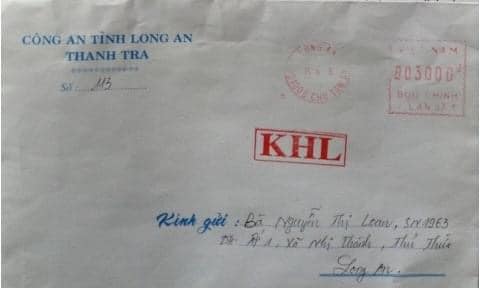 CÔNG AN TỈNH LONG AN
THANH TRA
Số: 113
LONG AN
VIỆT NAM
003000đ
BƯU CHÍNH
KHL
Kính gửi: Bà Nguyễn Thị Loan, SN 1963
Ấp 1, Xã Nhị Thành, Thủ Thừa
Long An.